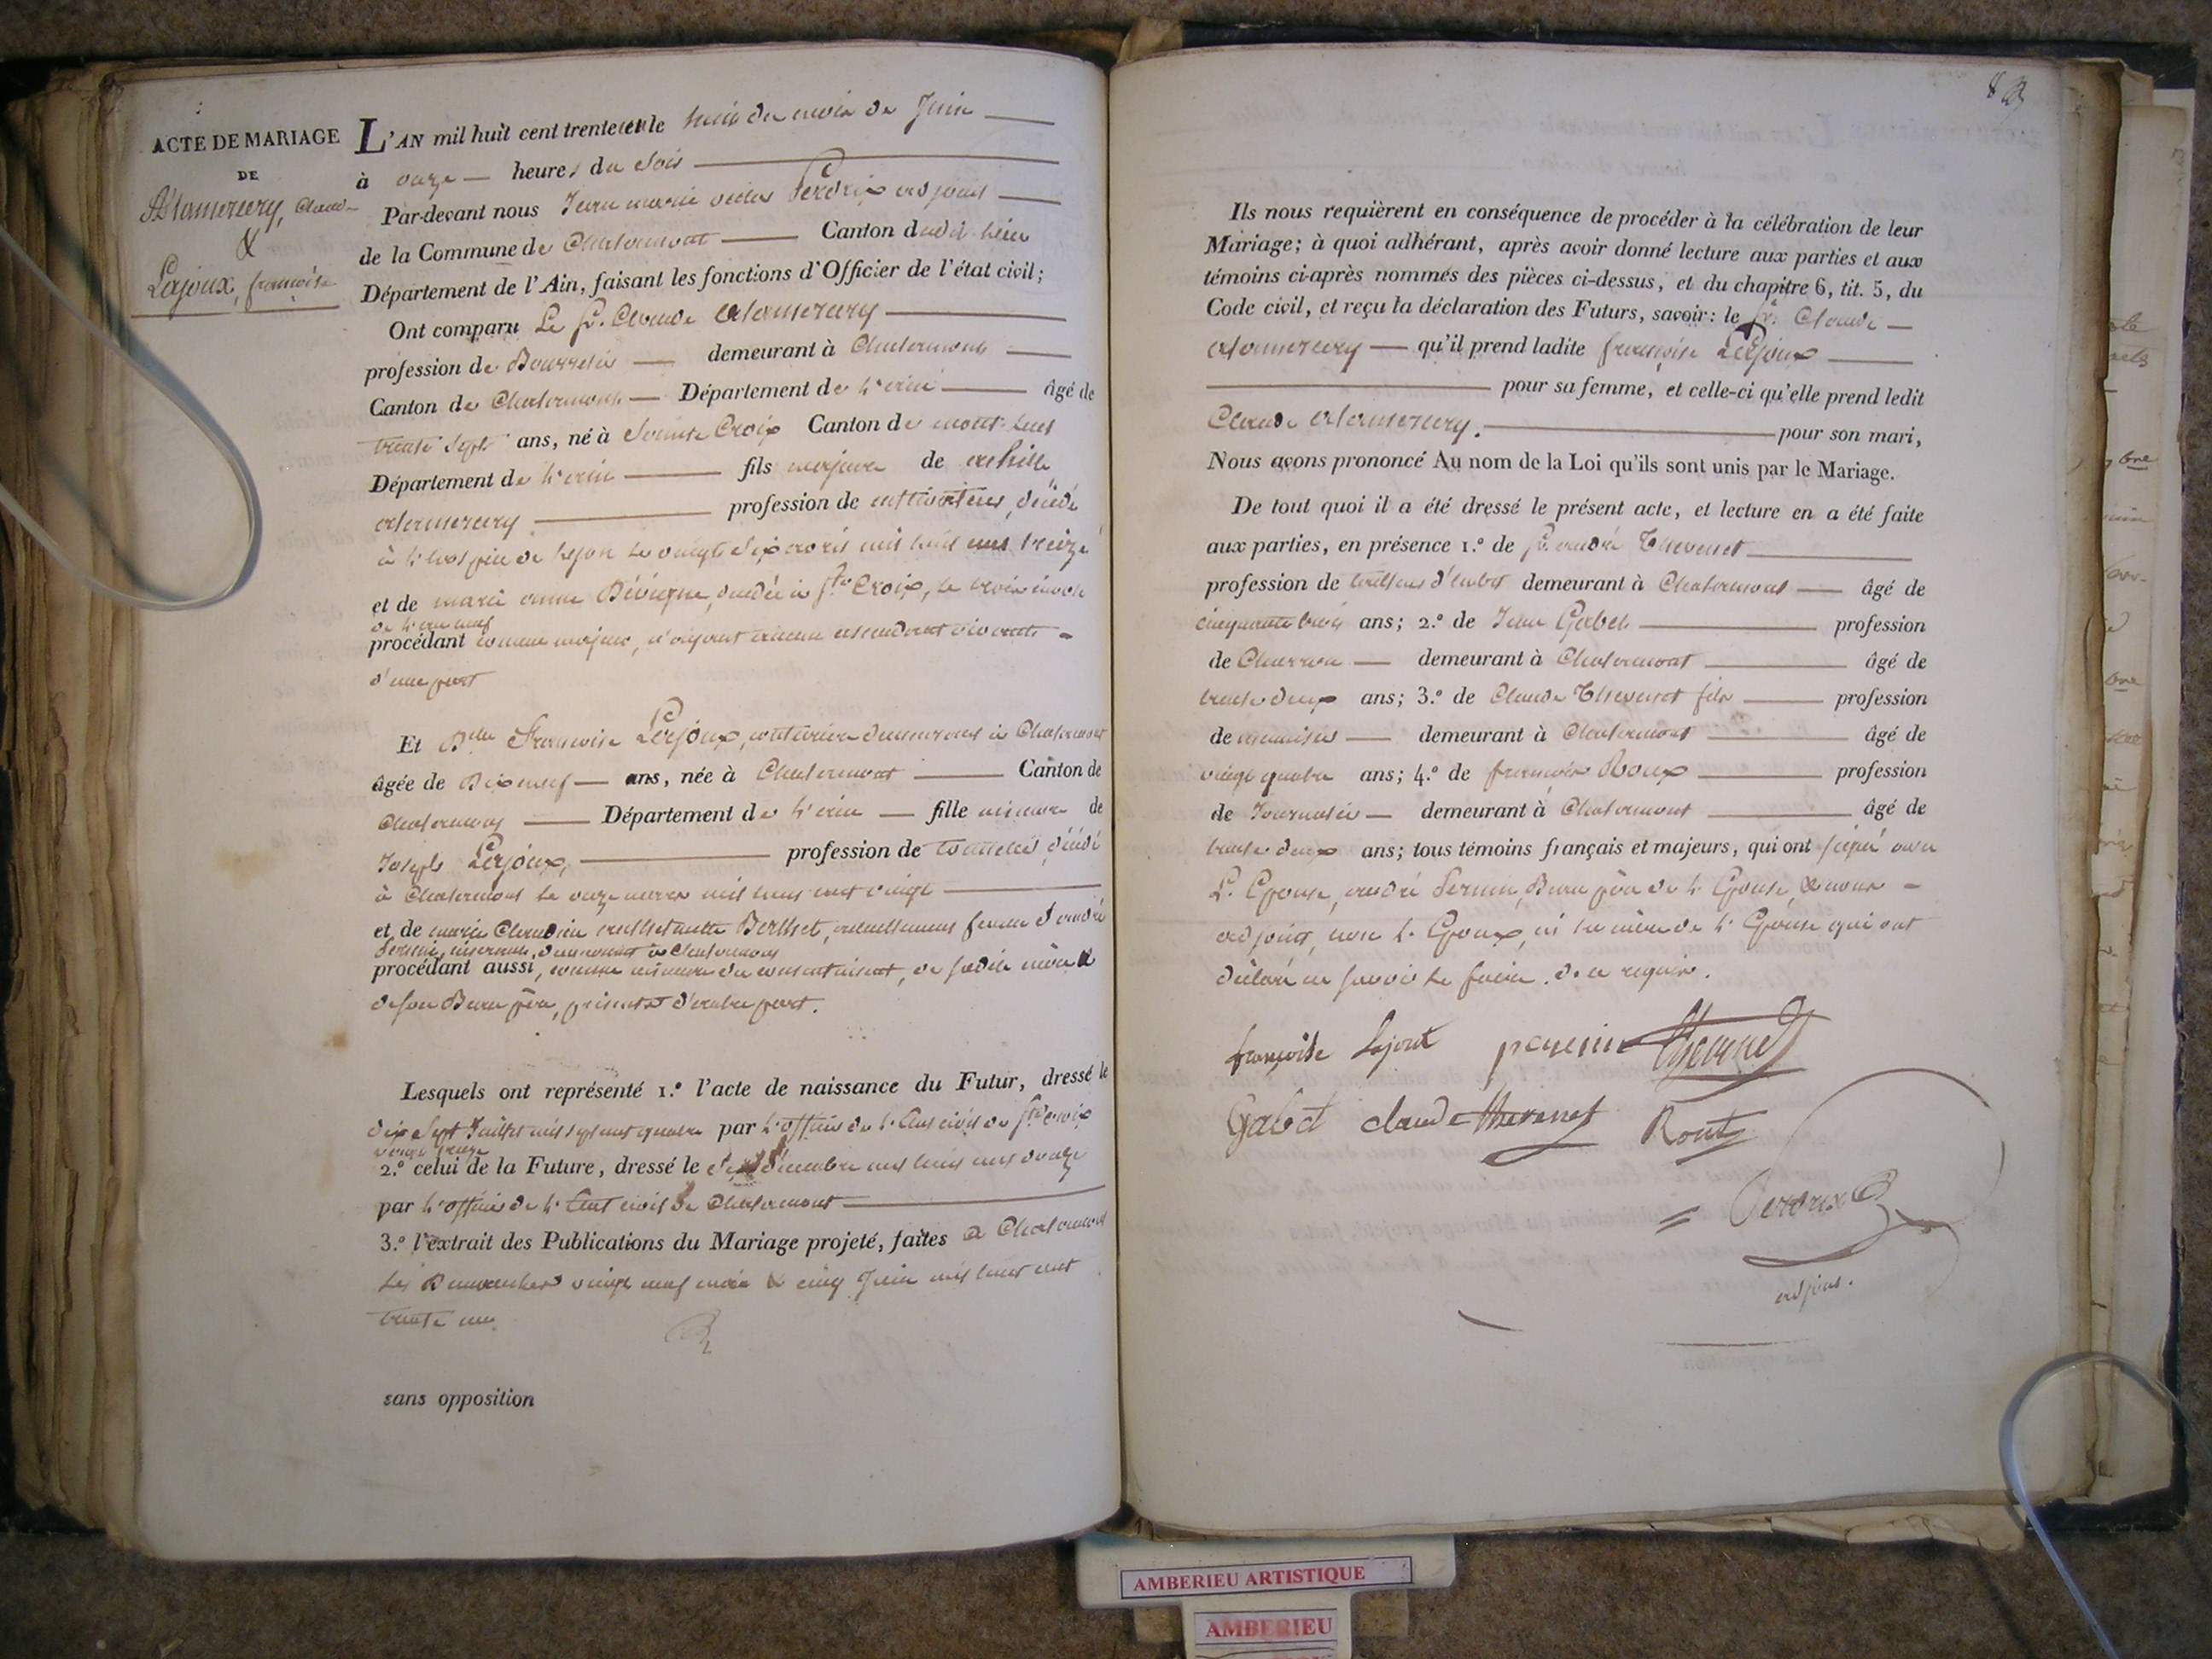 ACTE DE MARIAGE
DE
Claude
&
Lajoux, françoise
L'AN mil huit cent trente et un le huit du mois de Juin
à onze heures du soir
Par-devant nous Jean marie victor Perdrix adjoint
de la Commune de Chalamont Canton dudit lieu
Département de l'Ain, faisant les fonctions d'Officier de l'état civil;
Ont comparu Le Sr. Claude
profession de Bourrelier demeurant à Chalamont
Canton de Chalamont Département de l'ain âgé de
trente sept ans, né à Sainte Croix Canton de montluel
Département de l'ain fils majeur de
profession de cultivateur, décédé
à l'hospice de Lyon le vingt six mil huit cent treize
et de marie anne décédée à Ste Croix, le
de l'an neuf
procédant comme majeur, n'ayant aucun ascendant vivant
d'une part
Et Dlle Françoise Lajoux, couturière demeurant à Chalamont
âgée de Dix neuf ans, née à Chalamont Canton de
Chalamont Département de l'ain fille mineure de
Joseph Lajoux, profession de tonnelier, décédé
à Chalamont le onze mars mil huit cent vingt
et de marie Claudine antoinette Berthet, actuellement femme d'andré
demeurant à Chalamont
procédant aussi, comme mineure du consentement, de sadite mère &
de son Beau père, présents d'autre part.
Lesquels ont représenté 1.º l'acte de naissance du Futur, dressé le
dix Sept Juillet mil sept cent quatre par l'officier de l'état civil de Ste Croix
vingt treize
2.º celui de la Future, dressé le décembre mil huit cent onze
par l'officier de l'Etat civil de Chalamont
3.º l'extrait des Publications du Mariage projeté, faites à Chalamont
les Dimanches vingt neuf mai & cinq Juin mil huit cent
trente un.
sans opposition
Ils nous requièrent en conséquence de procéder à la célébration de leur
Mariage; à quoi adhérant, après avoir donné lecture aux parties et aux
témoins ci-après nommés des pièces ci-dessus, et du chapitre 6, tit. 5, du
Code civil, et reçu la déclaration des Futurs, savoir: le Sr. Claude
qu'il prend ladite françoise Lajoux
pour sa femme, et celle-ci qu'elle prend ledit
Claude pour son mari,
Nous avons prononcé Au nom de la Loi qu'ils sont unis par le Mariage.
De tout quoi il a été dressé le présent acte, et lecture en a été faite
aux parties, en présence 1.º de Sr. andré Thevenet
profession de tailleur d'habits demeurant à Chalamont âgé de
cinquante trois ans; 2.º de Jean Gabet profession
de Charron demeurant à Chalamont âgé de
trente deux ans; 3.º de Claude Thevenet fils profession
de menuisier demeurant à Chalamont âgé de
vingt quatre ans; 4.º de françois Roux profession
de Journalier demeurant à Chalamont âgé de
trente deux ans; tous témoins français et majeurs, qui ont signé avec
L'Epouse, andré Beau père de l'Epouse, & nous
adjoint, non l'Epoux, ni la mère de l'Epouse qui ont
déclaré ne savoir le faire. de ce requis.
françoise Lajout Thevenet
Gabet claude thevenet Rout
Perdrix
adjoint.
AMBERIEU ARTISTIQUE
AMBERIEU